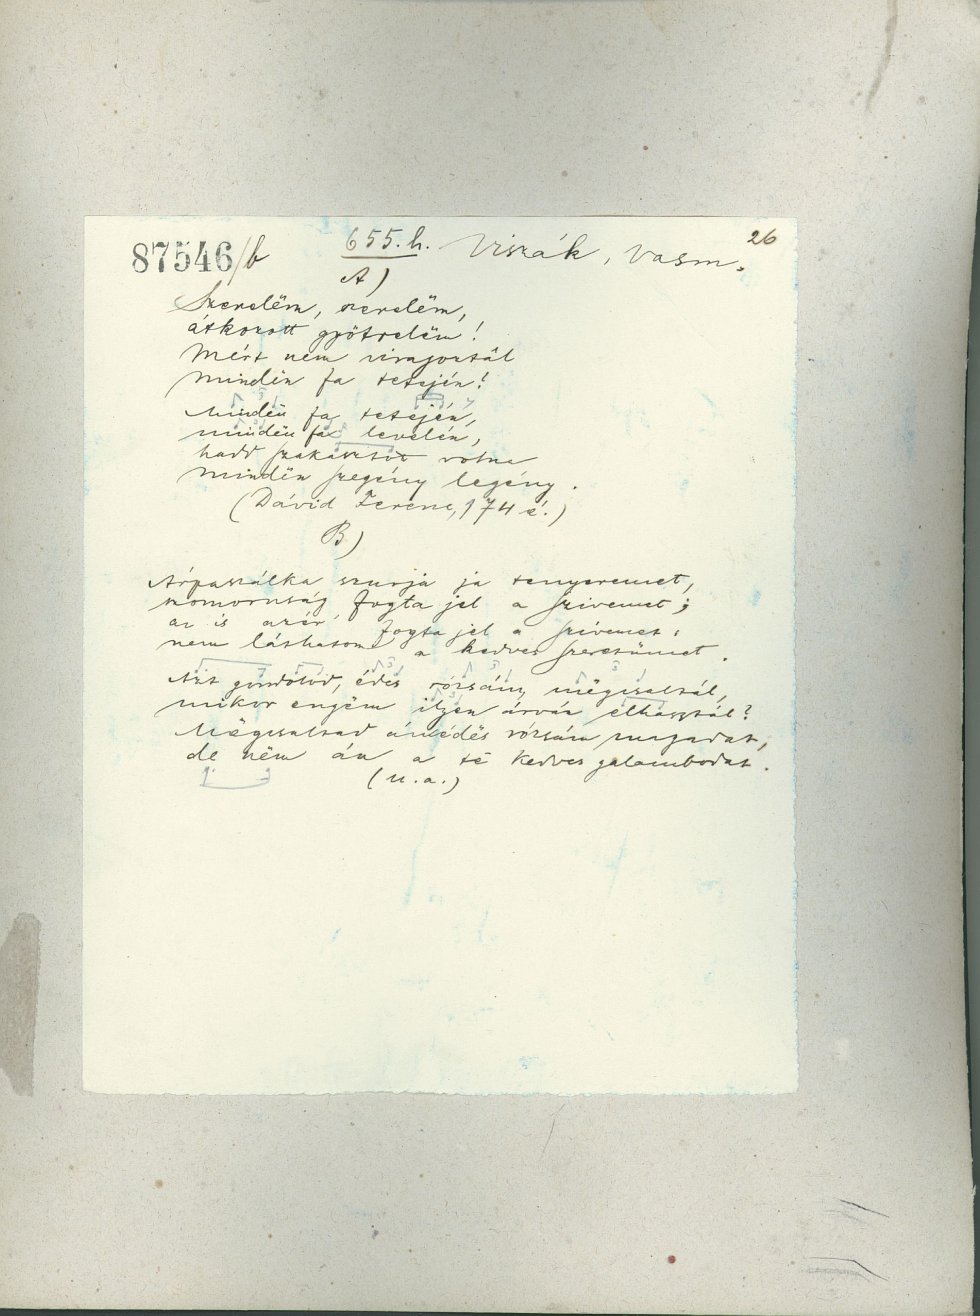 87546/b 655.h. Viszák, Vasm. 26
A)
Szerelëm, szerelëm,
átkozott gyötrelëm!
Mért nem virágoztál
mindën fa tetején!
Mindën fa tetején,
mindën fa levelén,
hadd szakasztott volna
mindën szegény legény.
(Dávid Ferenc, 74 é.)
B)
Árpaszálka szurja ja tenyeremet,
szomoruság fogta jel a szivemet;
az is azér fogta jel a szívemet:
nem láthatom a kedves szeretőmet.
Azt gondolod, édes rózsám, mëgcsaltál,
mikor engëm ilyen árván elhagytál?
Mëgcsaltad ám édës rózsám magadat,
de nëm ám a të kedves galambodat.
(u.a.)